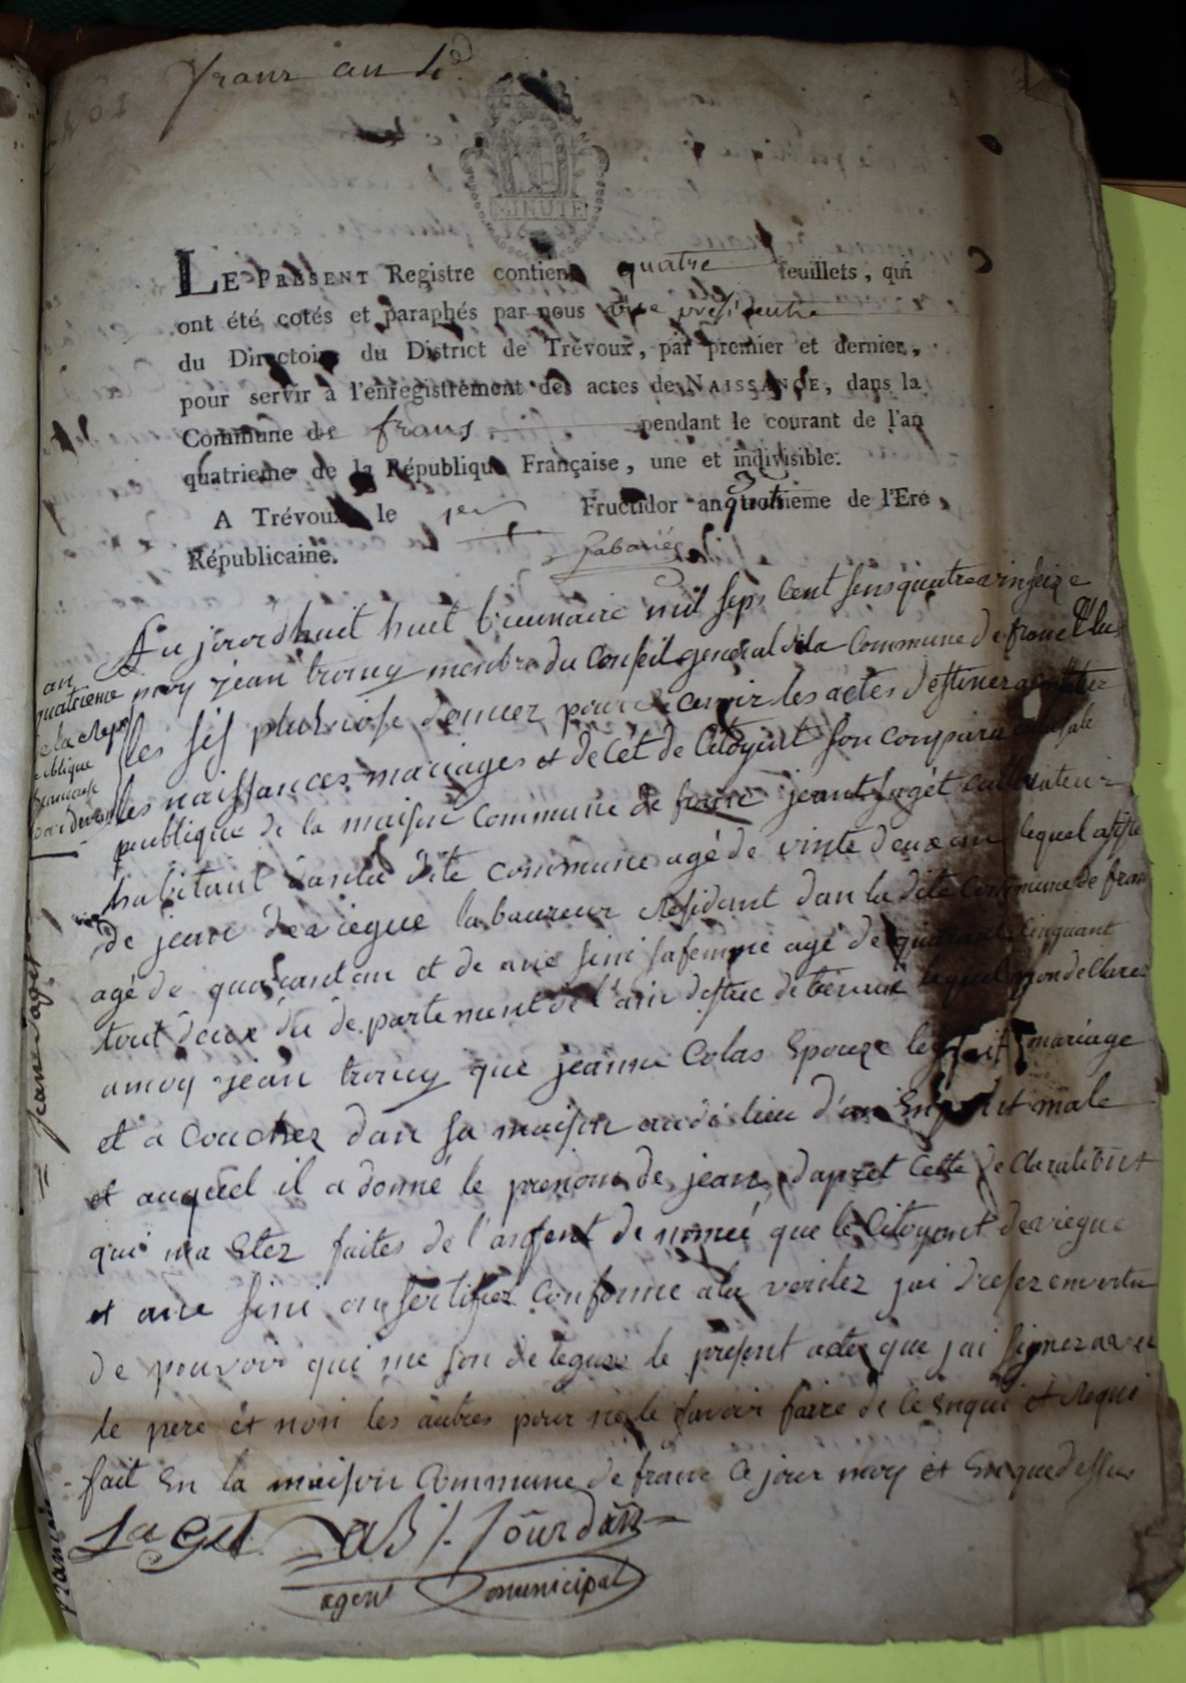 frans an 4e
MINUTE
LE PRÉSENT Registre contient quatre feuillets, qui
ont été cotés et paraphés par nous vice président
du Directoire du District de Trévoux, par premier et dernier,
pour servir à l'enregistrement des actes de NAISSANCE, dans la
Commune de frans pendant le courant de l'an
quatrieme de la République Française, une et indivisible.
A Trévoux le 1er Fructidor an troisieme de l'Ere
Républicaine.
Au jourdhuit huit brumaire mil sept Cent quatrevinseize
moy jean trouvy menbre du Conseil general de la Commune de franc Elu
les sis pluviose donner pour recevoir les actes destinez a
les naissances mariages et decet de Citoyent son conparu
publique de la maison Commune de franc jean laget cultivateur
habitant dans la dite commune agé de vinte deux an lequel assiste
de jean deviegue laboureur Residant dan la dite Commune de franc
agé de quarant an et de ane sini sa femme agé de cinquant
tout deux du departement de l'ain destric de trevoux lequel mon declarez
amoy jean trouvy que jeanne Colas Epouze mariage
et a Couchez dan sa maison audi lieu d'un Enfant male
et auquel il a donné le prenom de jean dapret Cette declaration
qui ma Etez faites de l'anfent de nomeé que le Citoyent deviegue
et ane sini on sertifiez Conforme ala veritez jai dresez envertu
de pouvoir qui me son deleguez le present acte que jai signez avec
le pere et non les autres pour ne le savoir faire de ce Enqui et Requi
fait En la maison Commune de franc Ce jour moy et En que dessus
Laget Jourdan
agent municipal
an
quatrieme
de la Repu
blique
francaise
jean laget